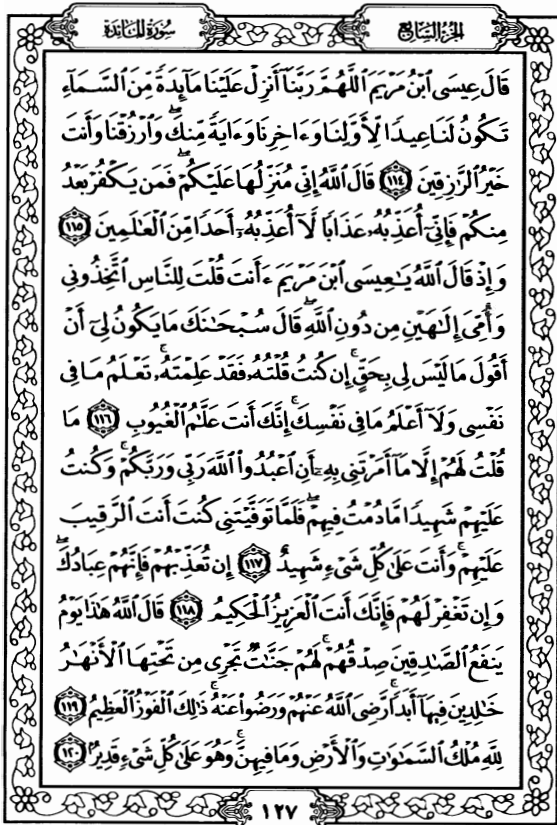 سُورَةُ المَائِدَة
الجُزْءُ السَّابِع
قَالَ عِيسَى ٱبْنُ مَرْيَمَ ٱللَّهُمَّ رَبَّنَآ أَنزِلْ عَلَيْنَا مَآئِدَةً مِّنَ ٱلسَّمَآءِ
تَكُونُ لَنَا عِيدًا لِّأَوَّلِنَا وَءَاخِرِنَا وَءَايَةً مِّنكَ ۖ وَٱرْزُقْنَا وَأَنتَ
خَيْرُ ٱلرَّٰزِقِينَ ١١٤ قَالَ ٱللَّهُ إِنِّى مُنَزِّلُهَا عَلَيْكُمْ ۖ فَمَن يَكْفُرْ بَعْدُ
مِنكُمْ فَإِنِّىٓ أُعَذِّبُهُۥ عَذَابًا لَّآ أُعَذِّبُهُۥٓ أَحَدًا مِّنَ ٱلْعَٰلَمِينَ ١١٥
وَإِذْ قَالَ ٱللَّهُ يَٰعِيسَى ٱبْنَ مَرْيَمَ ءَأَنتَ قُلْتَ لِلنَّاسِ ٱتَّخِذُونِى
وَأُمِّىَ إِلَٰهَيْنِ مِن دُونِ ٱللَّهِ ۖ قَالَ سُبْحَٰنَكَ مَا يَكُونُ لِىٓ أَنْ
أَقُولَ مَا لَيْسَ لِى بِحَقٍّ ۚ إِن كُنتُ قُلْتُهُۥ فَقَدْ عَلِمْتَهُۥ ۚ تَعْلَمُ مَا فِى
نَفْسِى وَلَآ أَعْلَمُ مَا فِى نَفْسِكَ ۚ إِنَّكَ أَنتَ عَلَّٰمُ ٱلْغُيُوبِ ١١٦ مَا
قُلْتُ لَهُمْ إِلَّا مَآ أَمَرْتَنِى بِهِۦٓ أَنِ ٱعْبُدُوا۟ ٱللَّهَ رَبِّى وَرَبَّكُمْ ۚ وَكُنتُ
عَلَيْهِمْ شَهِيدًا مَّا دُمْتُ فِيهِمْ ۖ فَلَمَّا تَوَفَّيْتَنِى كُنتَ أَنتَ ٱلرَّقِيبَ
عَلَيْهِمْ ۚ وَأَنتَ عَلَىٰ كُلِّ شَىْءٍ شَهِيدٌ ١١٧ إِن تُعَذِّبْهُمْ فَإِنَّهُمْ عِبَادُكَ ۖ
وَإِن تَغْفِرْ لَهُمْ فَإِنَّكَ أَنتَ ٱلْعَزِيزُ ٱلْحَكِيمُ ١١٨ قَالَ ٱللَّهُ هَٰذَا يَوْمُ
يَنفَعُ ٱلصَّٰدِقِينَ صِدْقُهُمْ ۚ لَهُمْ جَنَّٰتٌ تَجْرِى مِن تَحْتِهَا ٱلْأَنْهَٰرُ
خَٰلِدِينَ فِيهَآ أَبَدًا ۚ رَّضِىَ ٱللَّهُ عَنْهُمْ وَرَضُوا۟ عَنْهُ ۚ ذَٰلِكَ ٱلْفَوْزُ ٱلْعَظِيمُ ١١٩
لِلَّهِ مُلْكُ ٱلسَّمَٰوَٰتِ وَٱلْأَرْضِ وَمَا فِيهِنَّ ۚ وَهُوَ عَلَىٰ كُلِّ شَىْءٍ قَدِيرٌۢ ١٢٠
١٢٧